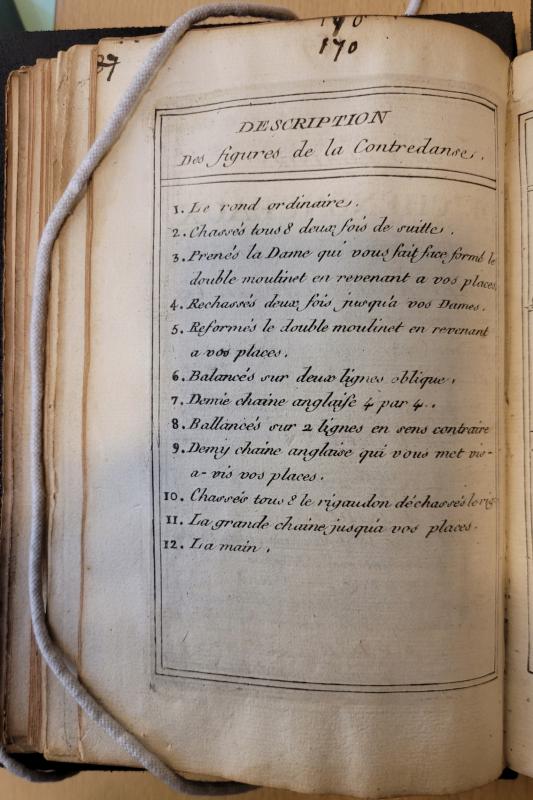 170
170
37
DESCRIPTION
Des figures de la Contredanse.
1. Le rond ordinaire.
2. Chassés tous 8 deux fois de suitte.
3. Prenés la Dame qui vous fait face formé le
double moulinet en revenant a vos places.
4. Rechassés deux fois jusqu'à vos Dames.
5. Reformés le double moulinet en revenant
a vos places.
6. Balancés sur deux lignes oblique.
7. Demie chaine anglaise 4 par 4.
8. Ballancés sur 2 lignes en sens contraire
9. Demy chaine anglaise qui vous met vis-
a-vis vos places.
10. Chassés tous 8 le rigaudon déchassés le rig
11. La grande chaine jusqu'à vos places.
12. La main.